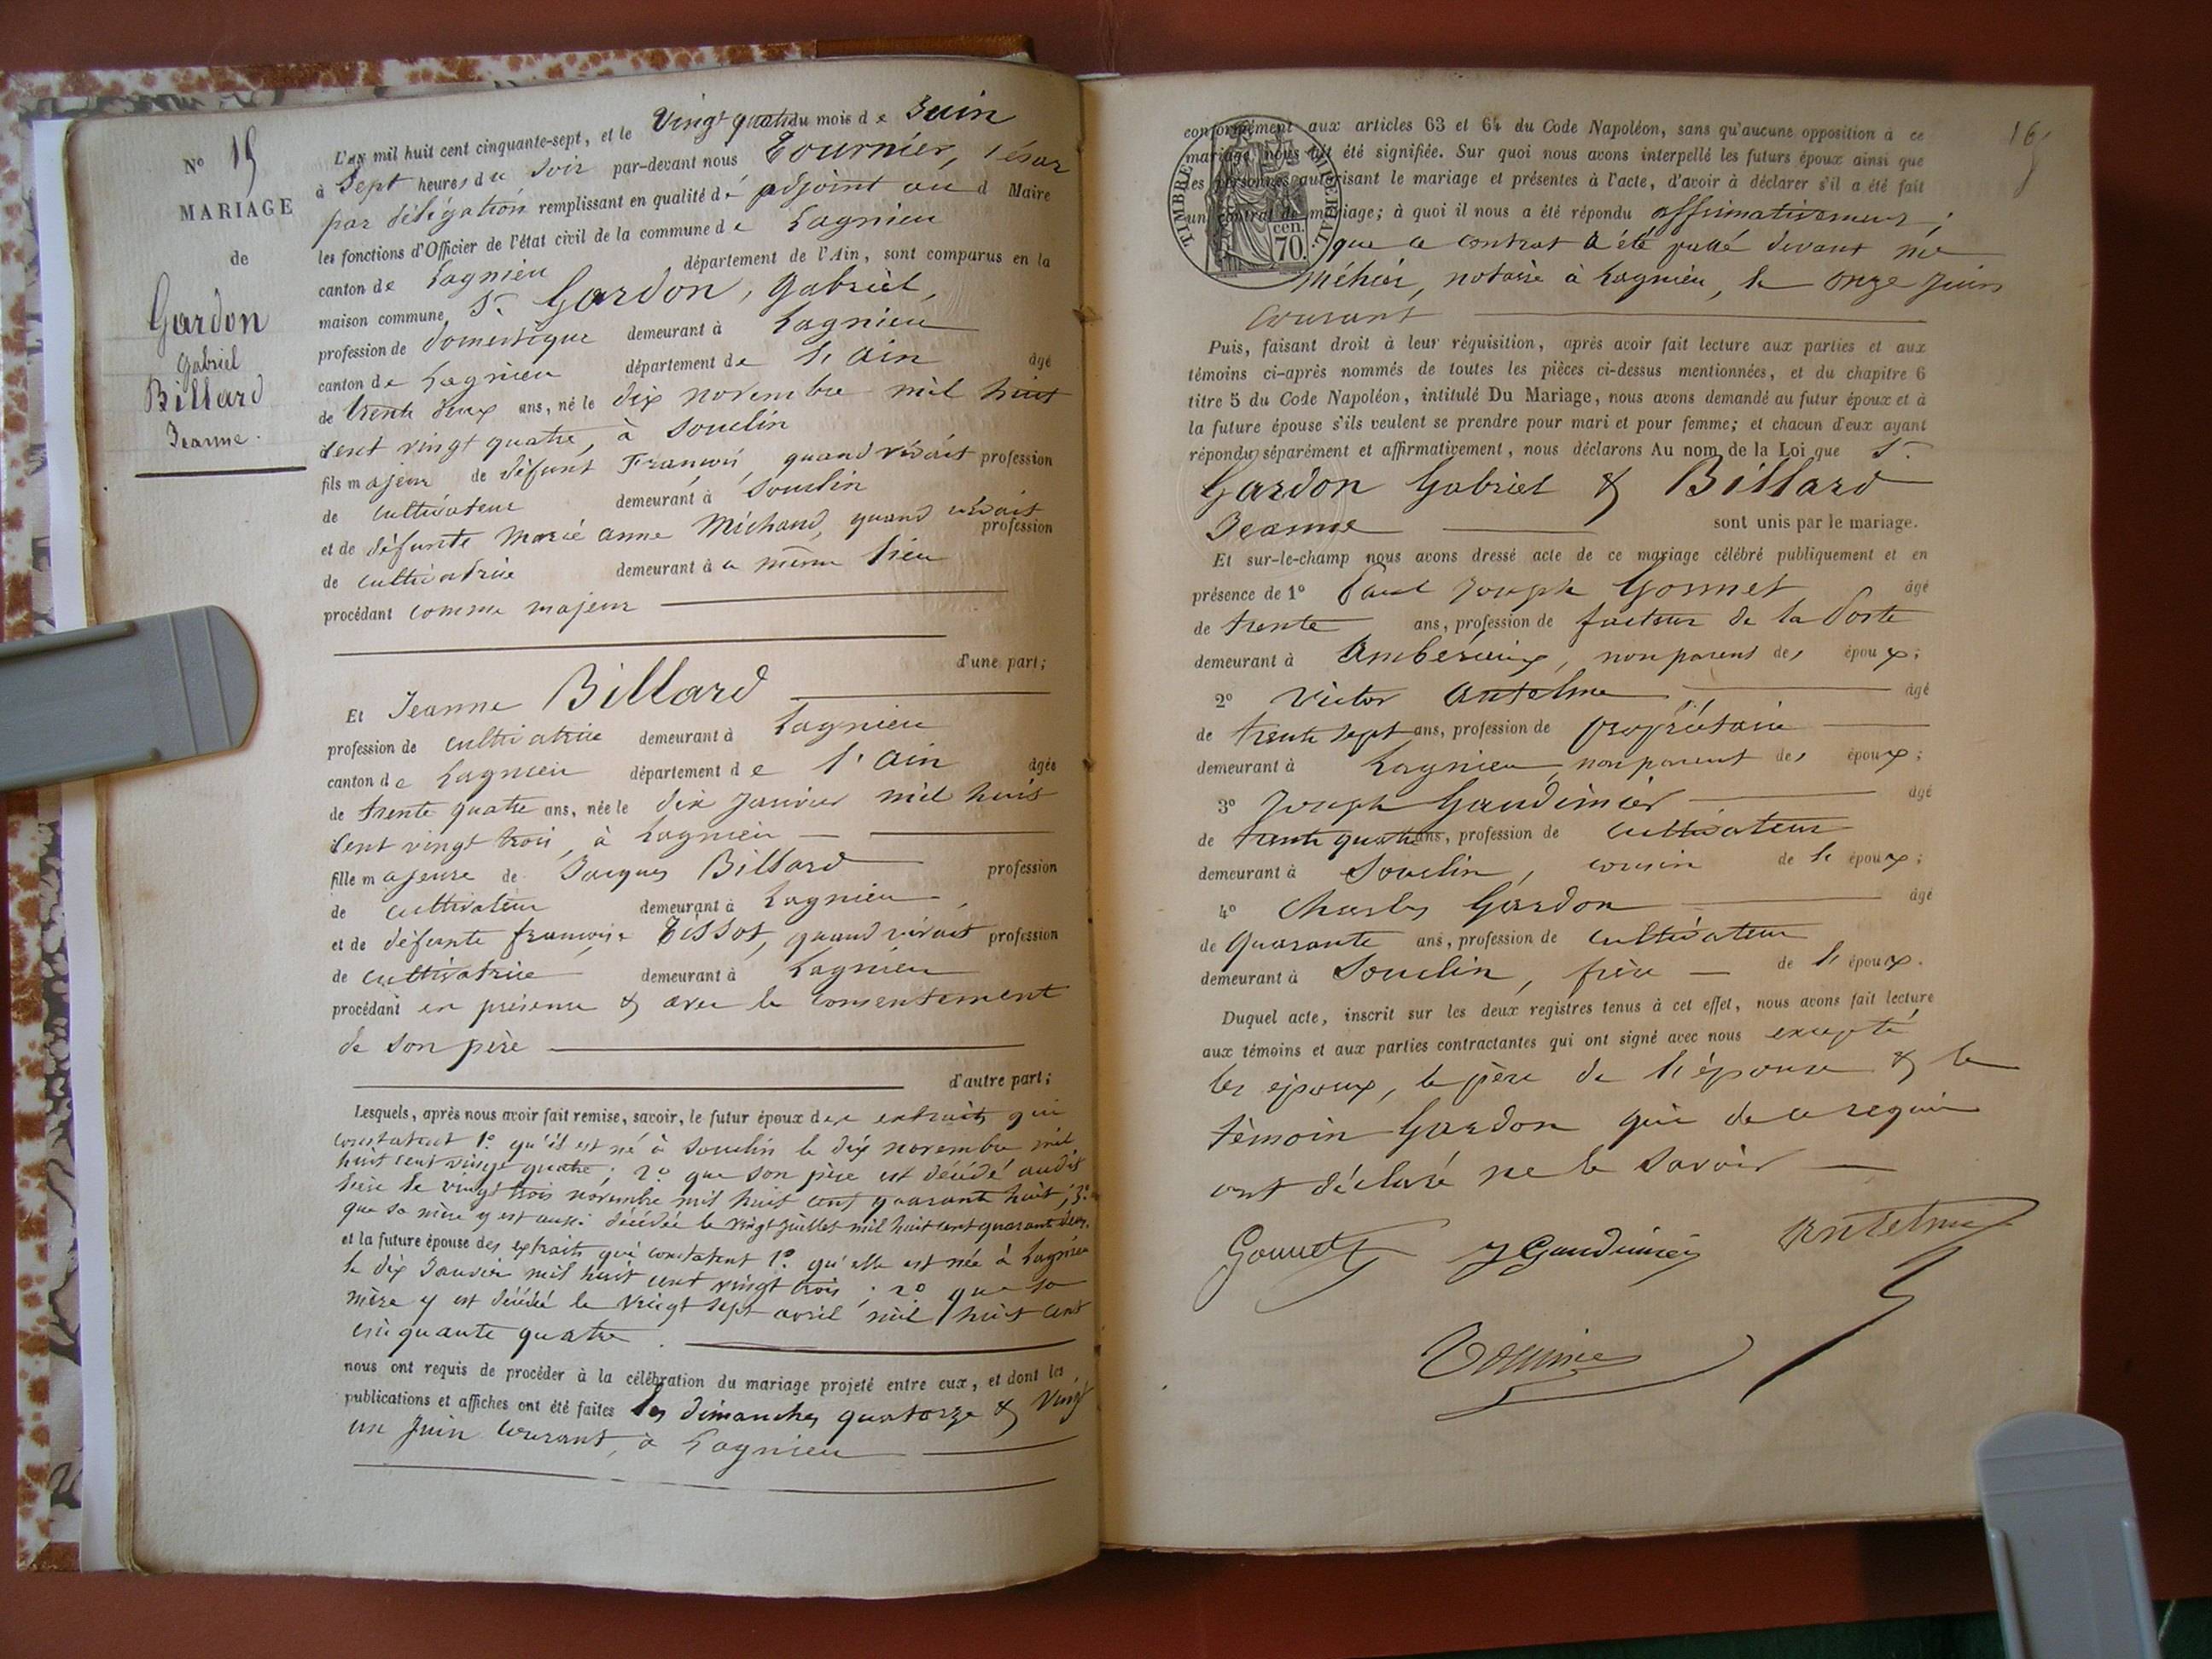 N° 15
MARIAGE
de
Gardon
Gabriel
Billard
Jeanne.
L'AN mil huit cent cinquante-sept, et le Vingt quatre du mois de Juin
à Sept heures du soir par-devant nous Tournier, César
par délégation remplissant en qualité d' adjoint au d Maire
les fonctions d'Officier de l'état civil de la commune de Lagnieu
canton de Lagnieu département de l'Ain, sont comparus en la
maison commune, Sr. Gardon, Gabriel,
profession de domestique demeurant à Lagnieu
canton de Lagnieu département de l'Ain âgé
de trente deux ans, né le dix novembre mil huit
cent vingt quatre, à Souclin
fils majeur de défunt François, quand vivait profession
de cultivateur demeurant à Souclin
et de défunte Marie anne Michaud, quand vivait profession
de cultivatrice demeurant à ce même lieu
procédant comme majeur
d'une part;
Et Jeanne Billard
profession de cultivatrice demeurant à Lagnieu
canton de Lagnieu département de l'Ain âgée
de trente quatre ans, née le dix Janvier mil huit
cent vingt trois, à Lagnieu
fille majeure de Jacques Billard profession
de cultivateur demeurant à Lagnieu,
et de défunte françoise Tissot, quand vivait profession
de cultivatrice demeurant à Lagnieu
procédant en présence & avec le consentement
de son père
d'autre part;
Lesquels, après nous avoir fait remise, savoir, le futur époux des extraits qui
constatent 1° qu'il est né à Souclin le dix novembre mil
huit cent vingt quatre; 2° que son père est décédé audit
lieu le vingt trois novembre mil huit cent quarante huit; 3°
que sa mère y est aussi décédée le vingt Juillet mil huit cent quarante deux.
et la future épouse des extraits qui constatent 1° qu'elle est née à Lagnieu
le dix Janvier mil huit cent vingt trois; 2° que sa
mère y est décédée le vingt sept avril mil huit cent
cinquante quatre.
nous ont requis de procéder à la célébration du mariage projeté entre eux, et dont les
publications et affiches ont été faites les dimanches quatorze & vingt
un Juin courant, à Lagnieu
16
TIMBRE IMPÉRIAL.
70. cen.
conformément aux articles 63 et 64 du Code Napoléon, sans qu'aucune opposition à ce
mariage nous ait été signifiée. Sur quoi nous avons interpellé les futurs époux ainsi que
les personnes autorisant le mariage et présentes à l'acte, d'avoir à déclarer s'il a été fait
un contrat de mariage; à quoi il nous a été répondu affirmativement;
que ce contrat a été passé devant Me
Méhier, notaire à Lagnieu, le onze Juin
courant
Puis, faisant droit à leur réquisition, après avoir fait lecture aux parties et aux
témoins ci-après nommés de toutes les pièces ci-dessus mentionnées, et du chapitre 6
titre 5 du Code Napoléon, intitulé Du Mariage, nous avons demandé au futur époux et à
la future épouse s'ils veulent se prendre pour mari et pour femme; et chacun d'eux ayant
répondu séparément et affirmativement, nous déclarons Au nom de la Loi que Sr.
Gardon Gabriel & Billard
Jeanne sont unis par le mariage.
Et sur-le-champ nous avons dressé acte de ce mariage célébré publiquement et en
présence de 1° Paul Joseph Gonnet âgé
de trente ans, profession de facteur de la Poste
demeurant à Ambérieux, non parent des époux;
2° Victor Antelme âgé
de trente sept ans, profession de propriétaire
demeurant à Lagnieu, non parent des époux;
3° Joseph Gaudimier âgé
de trente quatre ans, profession de cultivateur
demeurant à Souclin, cousin de l'époux;
4° Charles Gardon âgé
de quarante ans, profession de cultivateur
demeurant à Souclin, frère de l'époux.
Duquel acte, inscrit sur les deux registres tenus à cet effet, nous avons fait lecture
aux témoins et aux parties contractantes qui ont signé avec nous excepté
les époux, le père de l'épouse & le
témoin Gardon qui de ce requis
ont déclaré ne le savoir
Gonnet J Gaudimier Antelme
Tournier